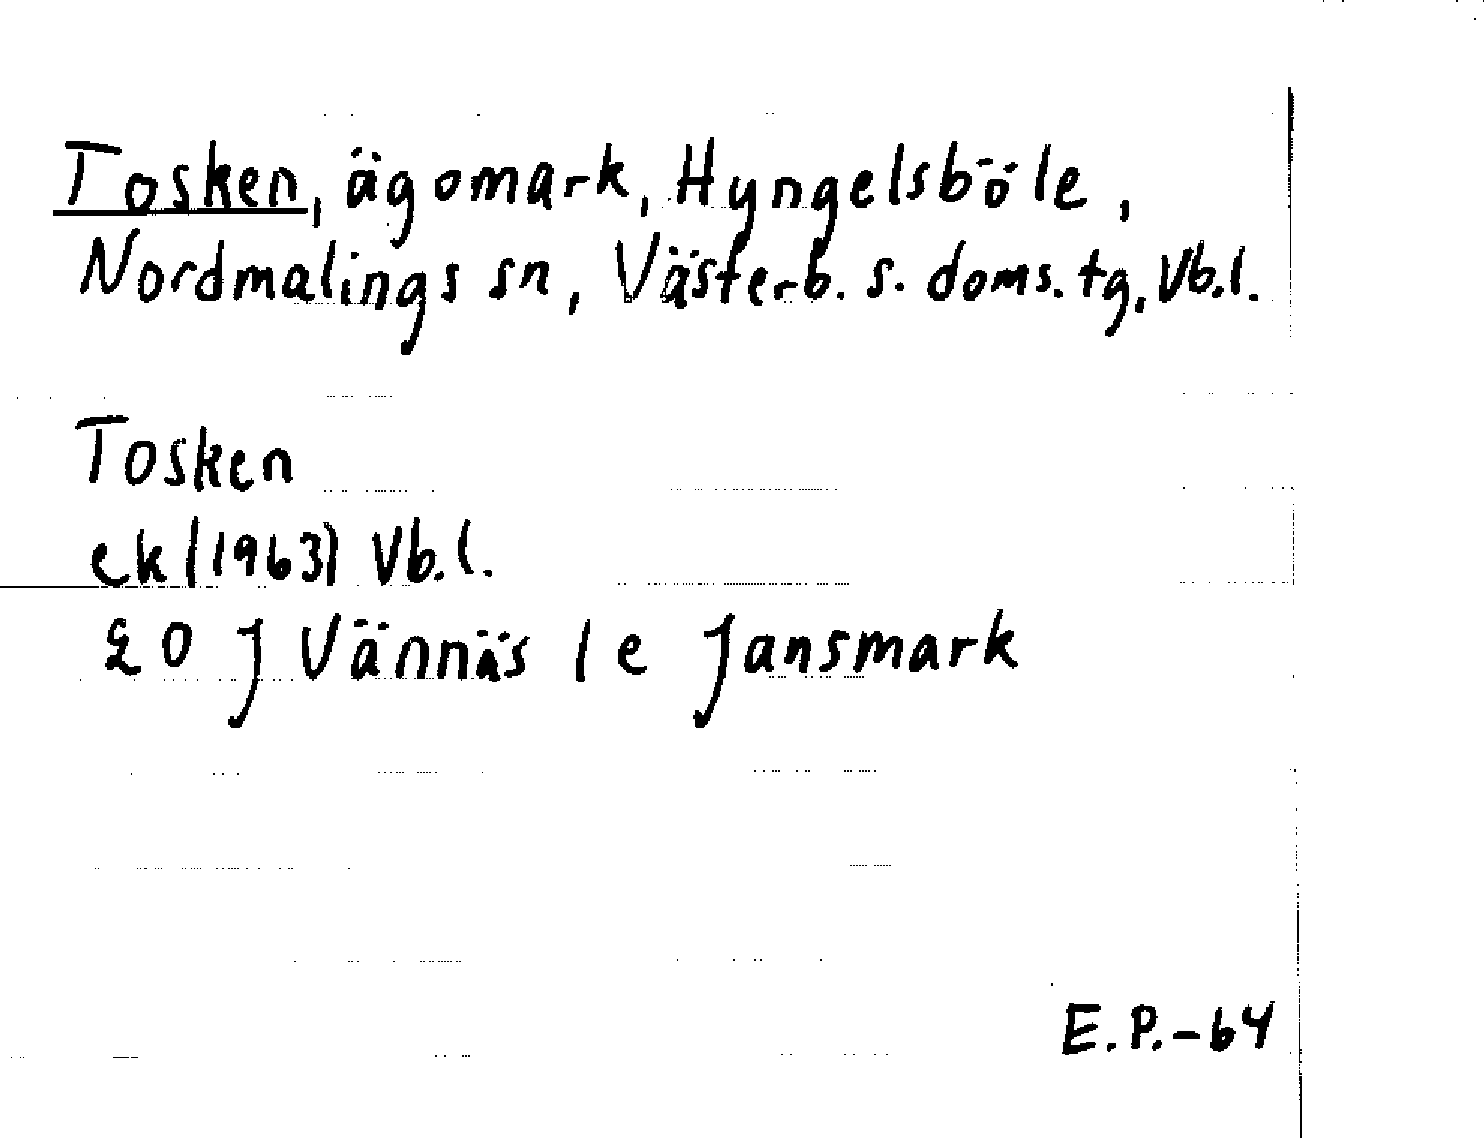 Tosken, ägomark, Hyngelsböle,
Nordmalings sn, Västerb. s. doms. tg, Vb.l.
Tosken
ek (1963) Vb.l.
20 J Vännäs 1 e Jansmark
E.P.-64